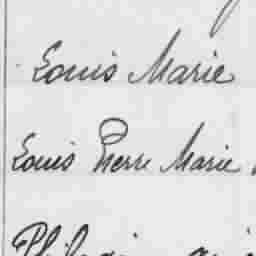 Louis Marie
Louis Pierre Marie